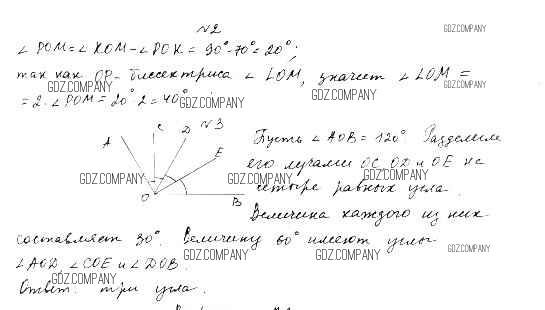 №2
GDZ.COMPANY
∠ POM = ∠ KOM - ∠ POK = 90° - 70° = 20°;
так как OP - биссектриса ∠ LOM, значит ∠ LOM =
GDZ.COMPANY GDZ.COMPANY GDZ.COMPANY
= 2 · ∠ POM = 20° · 2 = 40°
GDZ.COMPANY
№3
A C D E O B
Пусть ∠ AOB = 120° Разделим
его лучами OC, OD и OE на
GDZ.COMPANY GDZ.COMPANY GDZ.COMPANY
четыре равных угла.
Величина каждого из них
составляет 30°. Величину 60° имеют углы
GDZ.COMPANY GDZ.COMPANY GDZ.COMPANY
∠AOD, ∠COE и ∠DOB.
GDZ.COMPANY
Ответ: три угла.